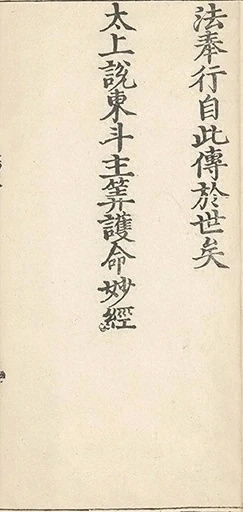 法奉行自此傳於世矣
太上說東斗主筭護命妙經